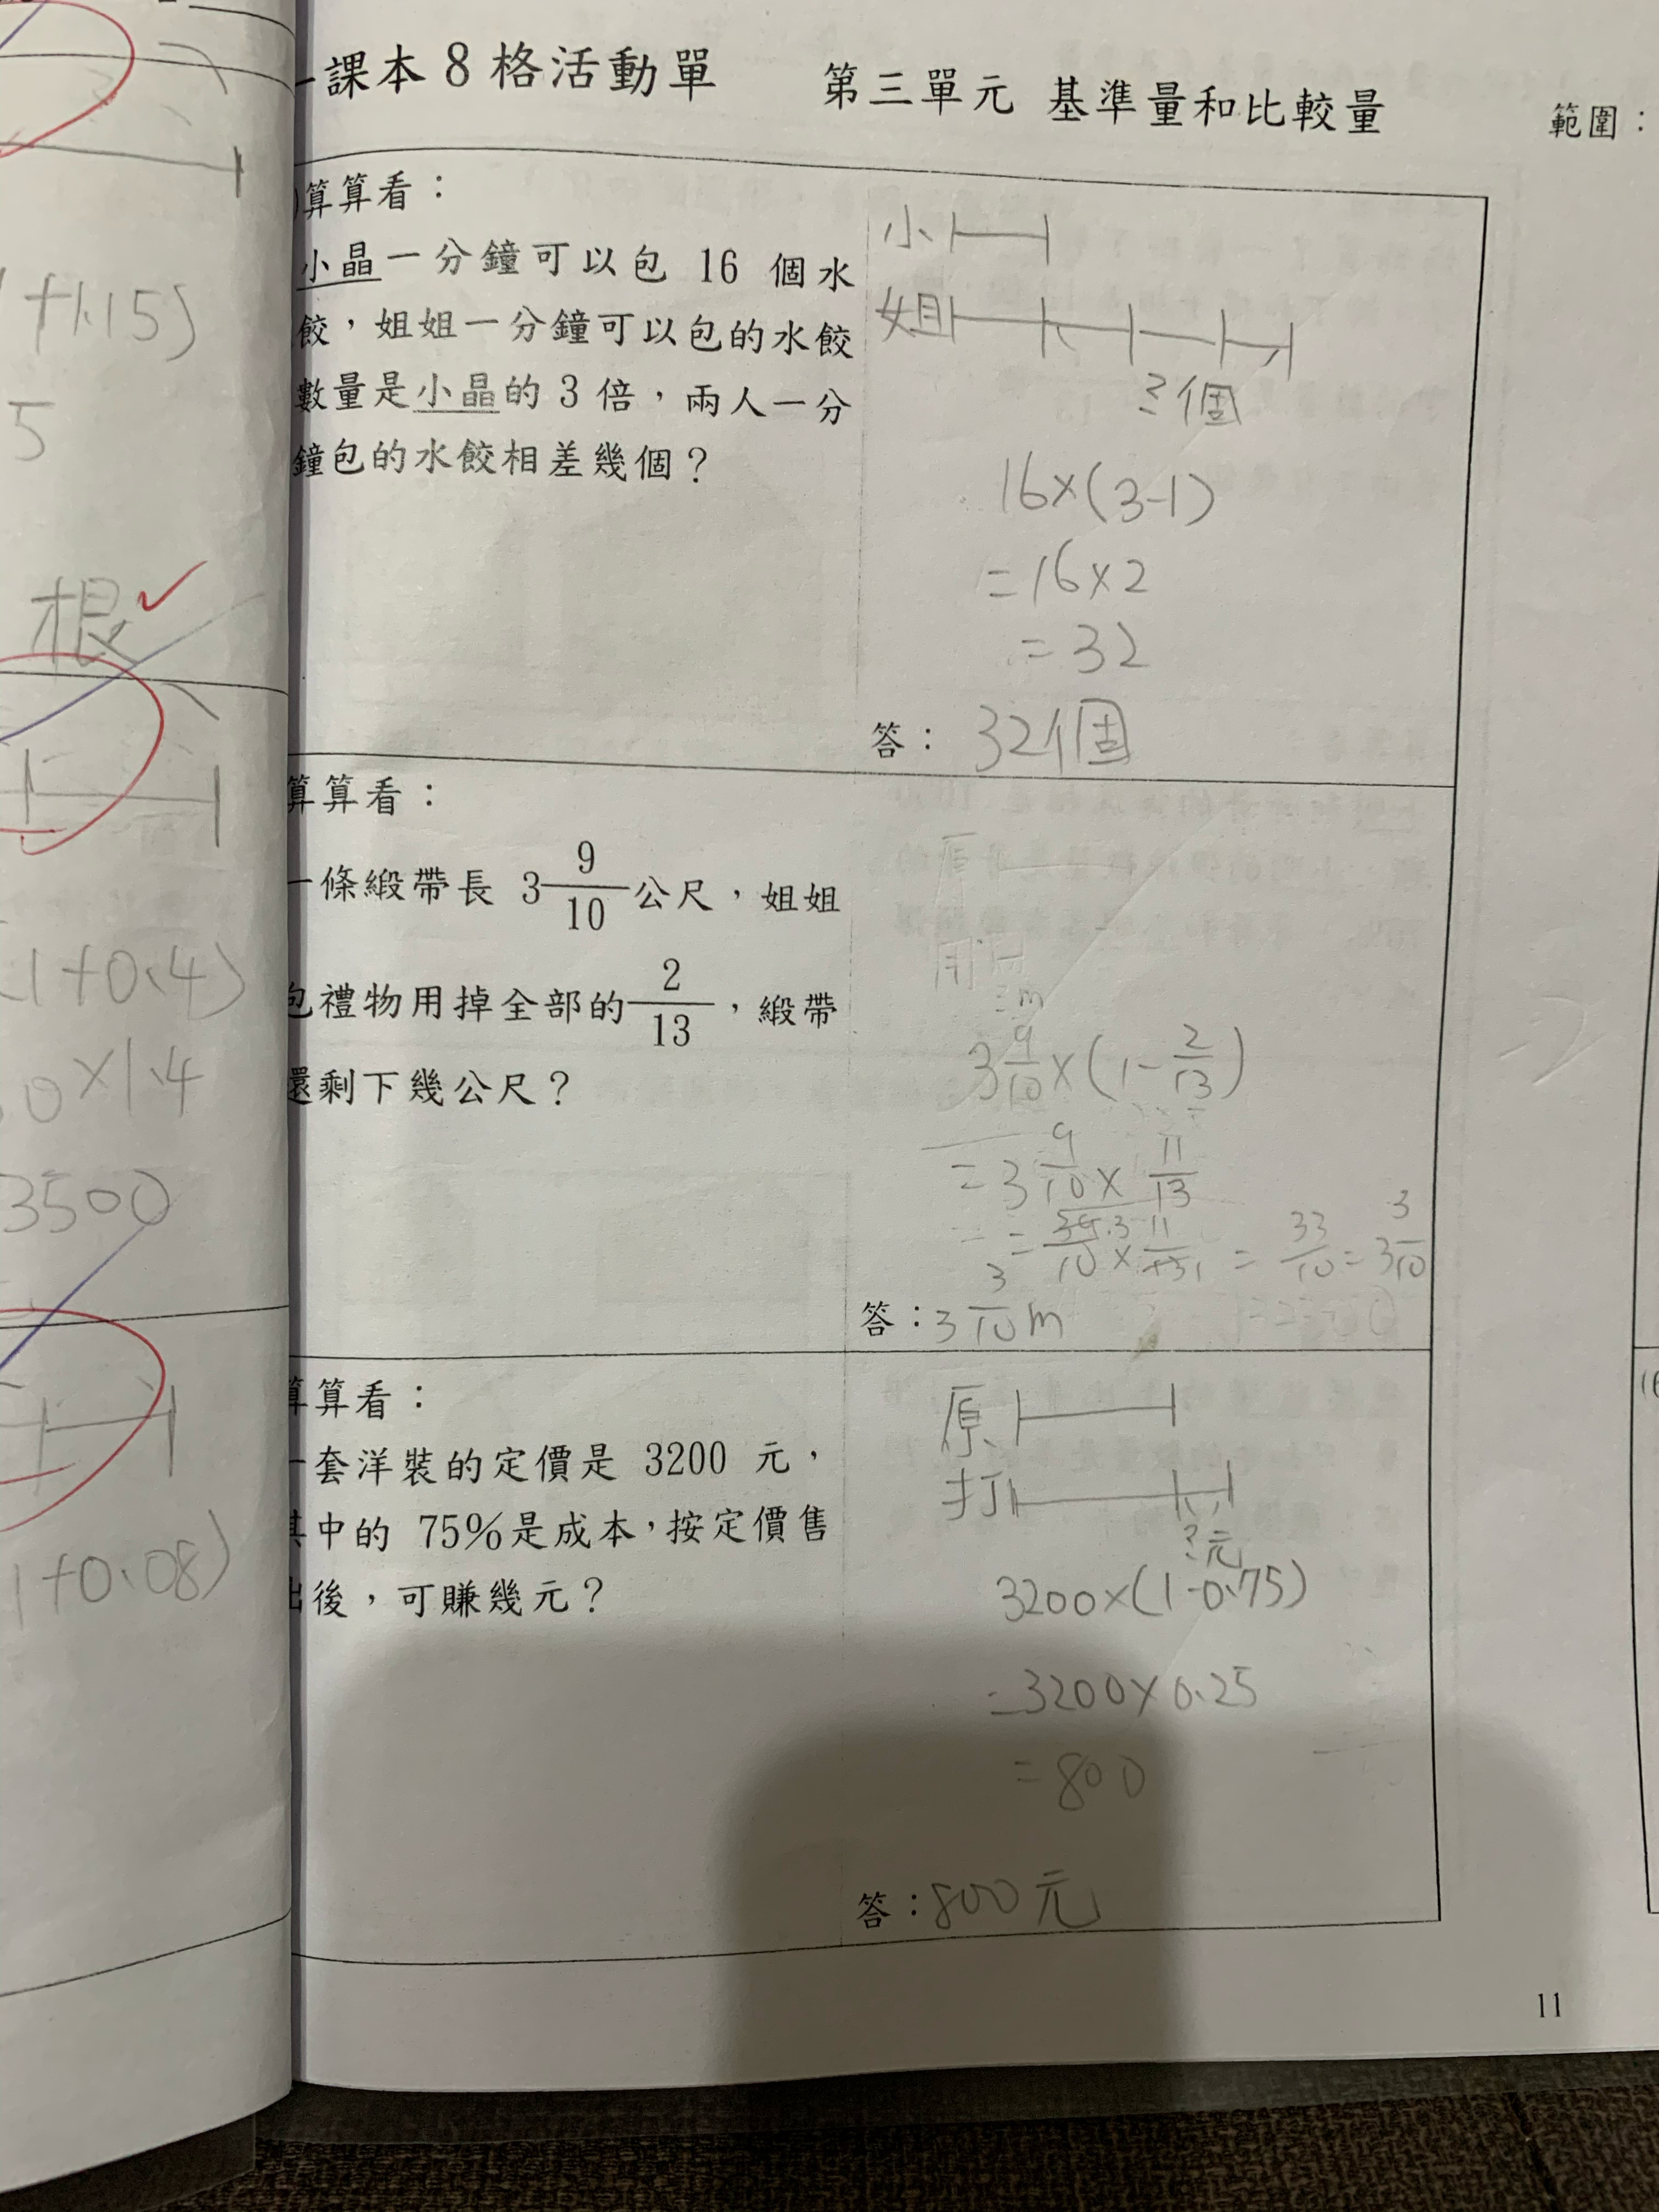 課本 8 格活動單 第三單元 基準量和比較量 範圍：
算算看：
小晶一分鐘可以包 16 個水
餃，姐姐一分鐘可以包的水餃
數量是小晶的 3 倍，兩人一分
鐘包的水餃相差幾個？
小
姐
?個
16×(3-1)
=16×2
=32
答： 32個
算算看：
一條緞帶長 3 9/10 公尺，姐姐
包禮物用掉全部的 2/13，緞帶
還剩下幾公尺？
原
用
?m
3 9/10×(1-2/13)
=3 9/10×11/13
=39/10×11/13=33/10=3 3/10
答：3 3/10 m
算算看：
一套洋裝的定價是 3200 元，
其中的 75%是成本，按定價售
出後，可賺幾元？
原
打
?元
3200×(1-0.75)
=3200×0.25
=800
答：800元
11
+1.15)
5
根
1+0.4)
0×1.4
3500
1+0.08)